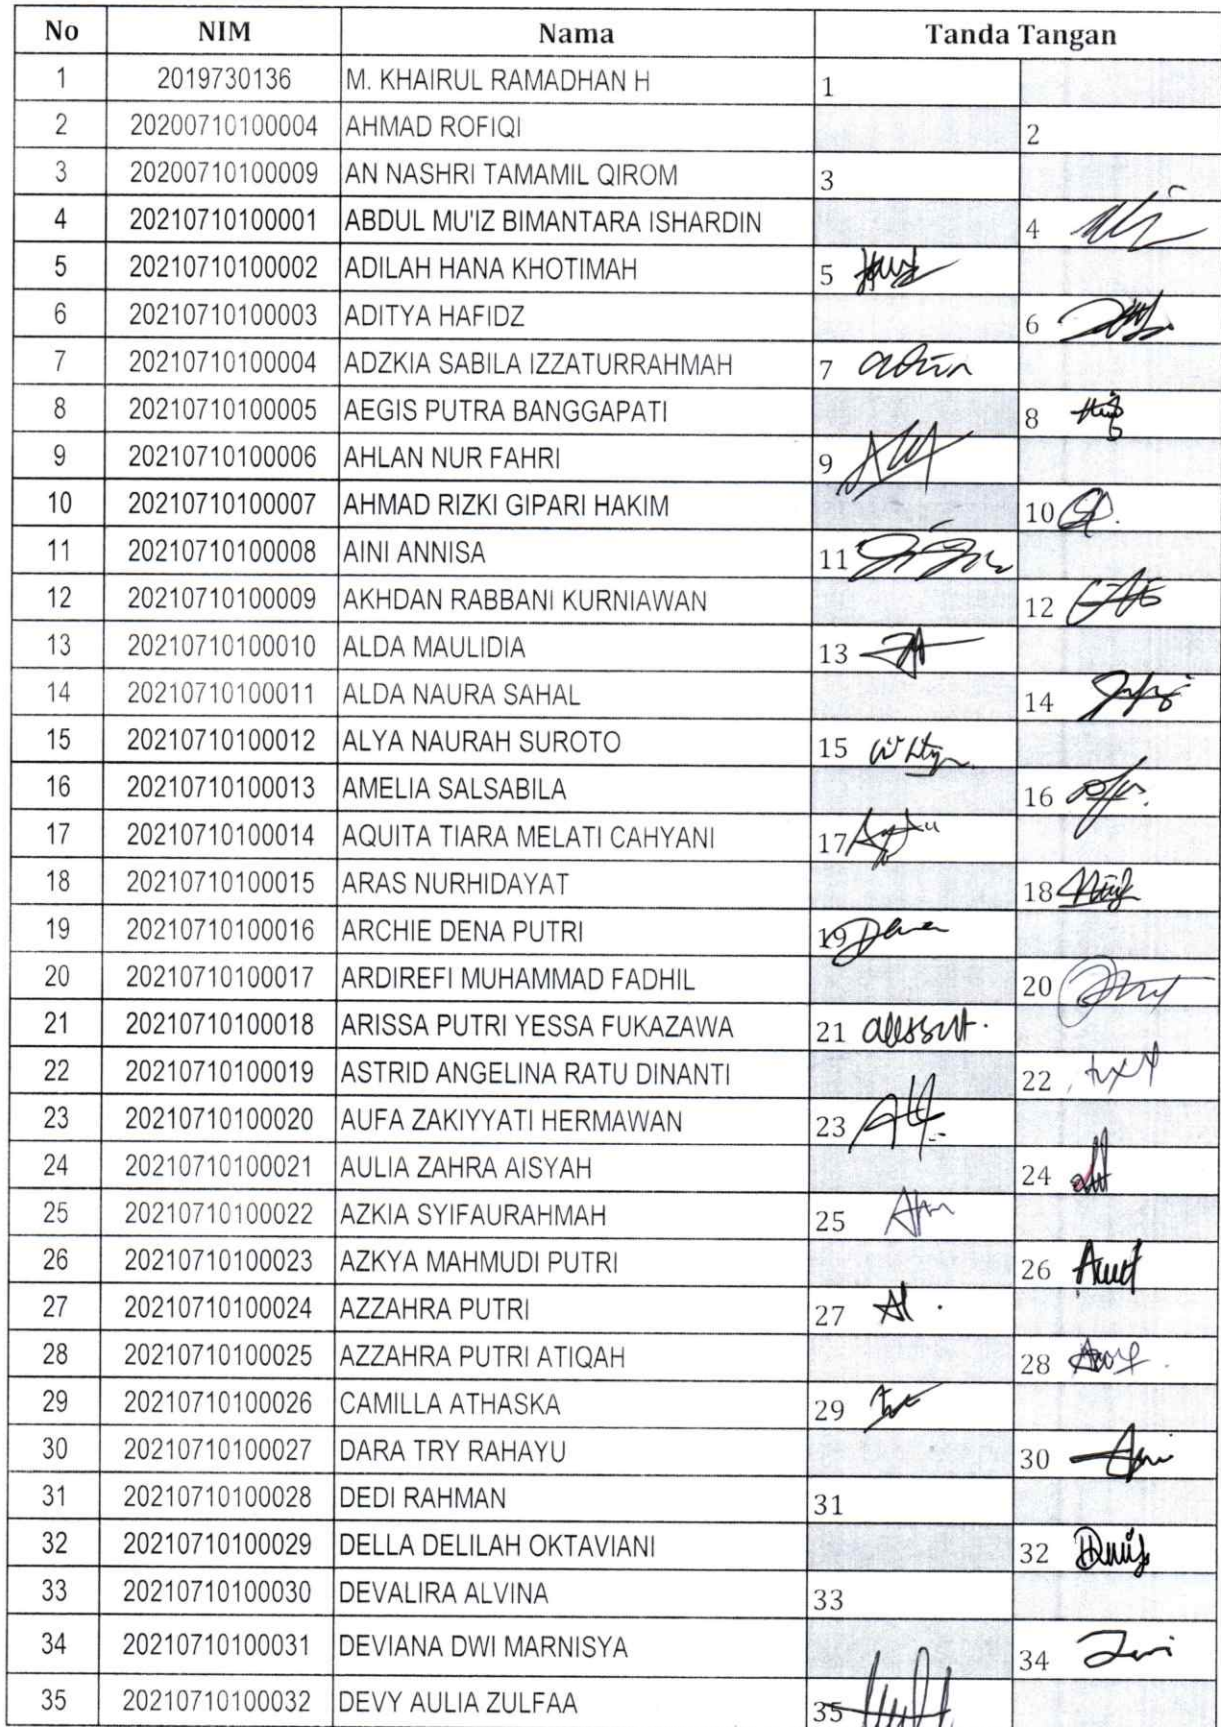 No NIM Nama Tanda Tangan
1 2019730136 M. KHAIRUL RAMADHAN H 1
2 20200710100004 AHMAD ROFIQI 2
3 20200710100009 AN NASHRI TAMAMIL QIROM 3
4 20210710100001 ABDUL MU'IZ BIMANTARA ISHARDIN 4
5 20210710100002 ADILAH HANA KHOTIMAH 5
6 20210710100003 ADITYA HAFIDZ 6
7 20210710100004 ADZKIA SABILA IZZATURRAHMAH 7
8 20210710100005 AEGIS PUTRA BANGGAPATI 8
9 20210710100006 AHLAN NUR FAHRI 9
10 20210710100007 AHMAD RIZKI GIPARI HAKIM 10
11 20210710100008 AINI ANNISA 11
12 20210710100009 AKHDAN RABBANI KURNIAWAN 12
13 20210710100010 ALDA MAULIDIA 13
14 20210710100011 ALDA NAURA SAHAL 14
15 20210710100012 ALYA NAURAH SUROTO 15
16 20210710100013 AMELIA SALSABILA 16
17 20210710100014 AQUITA TIARA MELATI CAHYANI 17
18 20210710100015 ARAS NURHIDAYAT 18
19 20210710100016 ARCHIE DENA PUTRI 19
20 20210710100017 ARDIREFI MUHAMMAD FADHIL 20
21 20210710100018 ARISSA PUTRI YESSA FUKAZAWA 21
22 20210710100019 ASTRID ANGELINA RATU DINANTI 22
23 20210710100020 AUFA ZAKIYYATI HERMAWAN 23
24 20210710100021 AULIA ZAHRA AISYAH 24
25 20210710100022 AZKIA SYIFAURAHMAH 25
26 20210710100023 AZKYA MAHMUDI PUTRI 26
27 20210710100024 AZZAHRA PUTRI 27
28 20210710100025 AZZAHRA PUTRI ATIQAH 28
29 20210710100026 CAMILLA ATHASKA 29
30 20210710100027 DARA TRY RAHAYU 30
31 20210710100028 DEDI RAHMAN 31
32 20210710100029 DELLA DELILAH OKTAVIANI 32
33 20210710100030 DEVALIRA ALVINA 33
34 20210710100031 DEVIANA DWI MARNISYA 34
35 20210710100032 DEVY AULIA ZULFAA 35